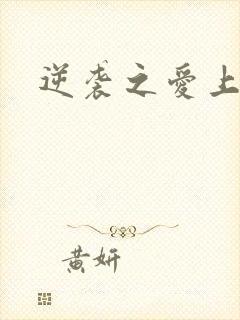 逆袭之爱上
黄妍